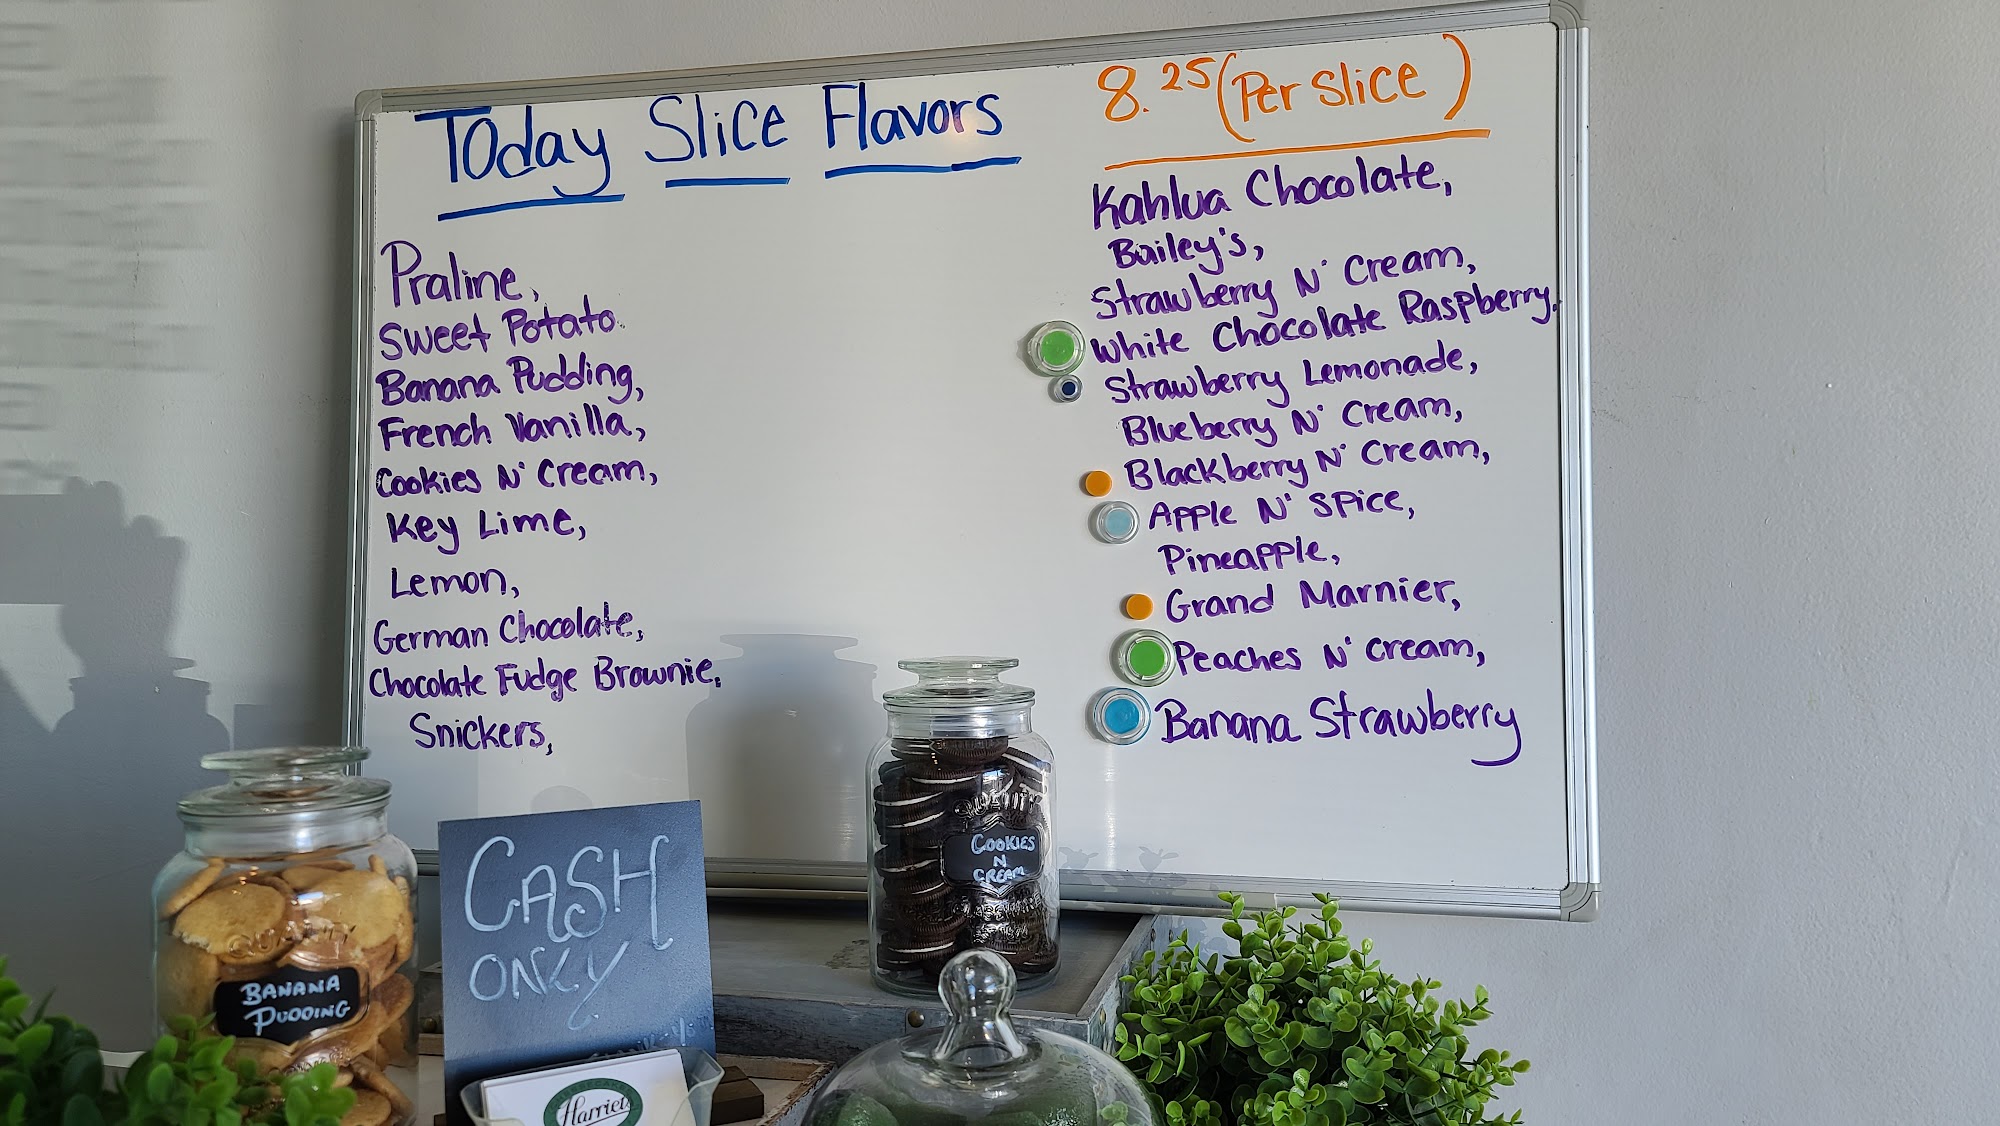 Today Slice Flavors
8.25 (Per Slice)
Praline,
Sweet Potato
Banana Pudding,
French Vanilla,
Cookies N' Cream,
Key Lime,
Lemon,
German Chocolate,
Chocolate Fudge Brownie,
Snickers,
Kahlua Chocolate,
Bailey's,
Strawberry N' Cream,
White Chocolate Raspberry,
Strawberry Lemonade,
Blueberry N' Cream,
Blackberry N' Cream,
Apple N' Spice,
Pineapple,
Grand Marnier,
Peaches N' Cream,
Banana Strawberry
QUALITY
COOKIES
N
CREAM
CASH
ONLY
QUALITY
BANANA
PUDDING
Harriet's